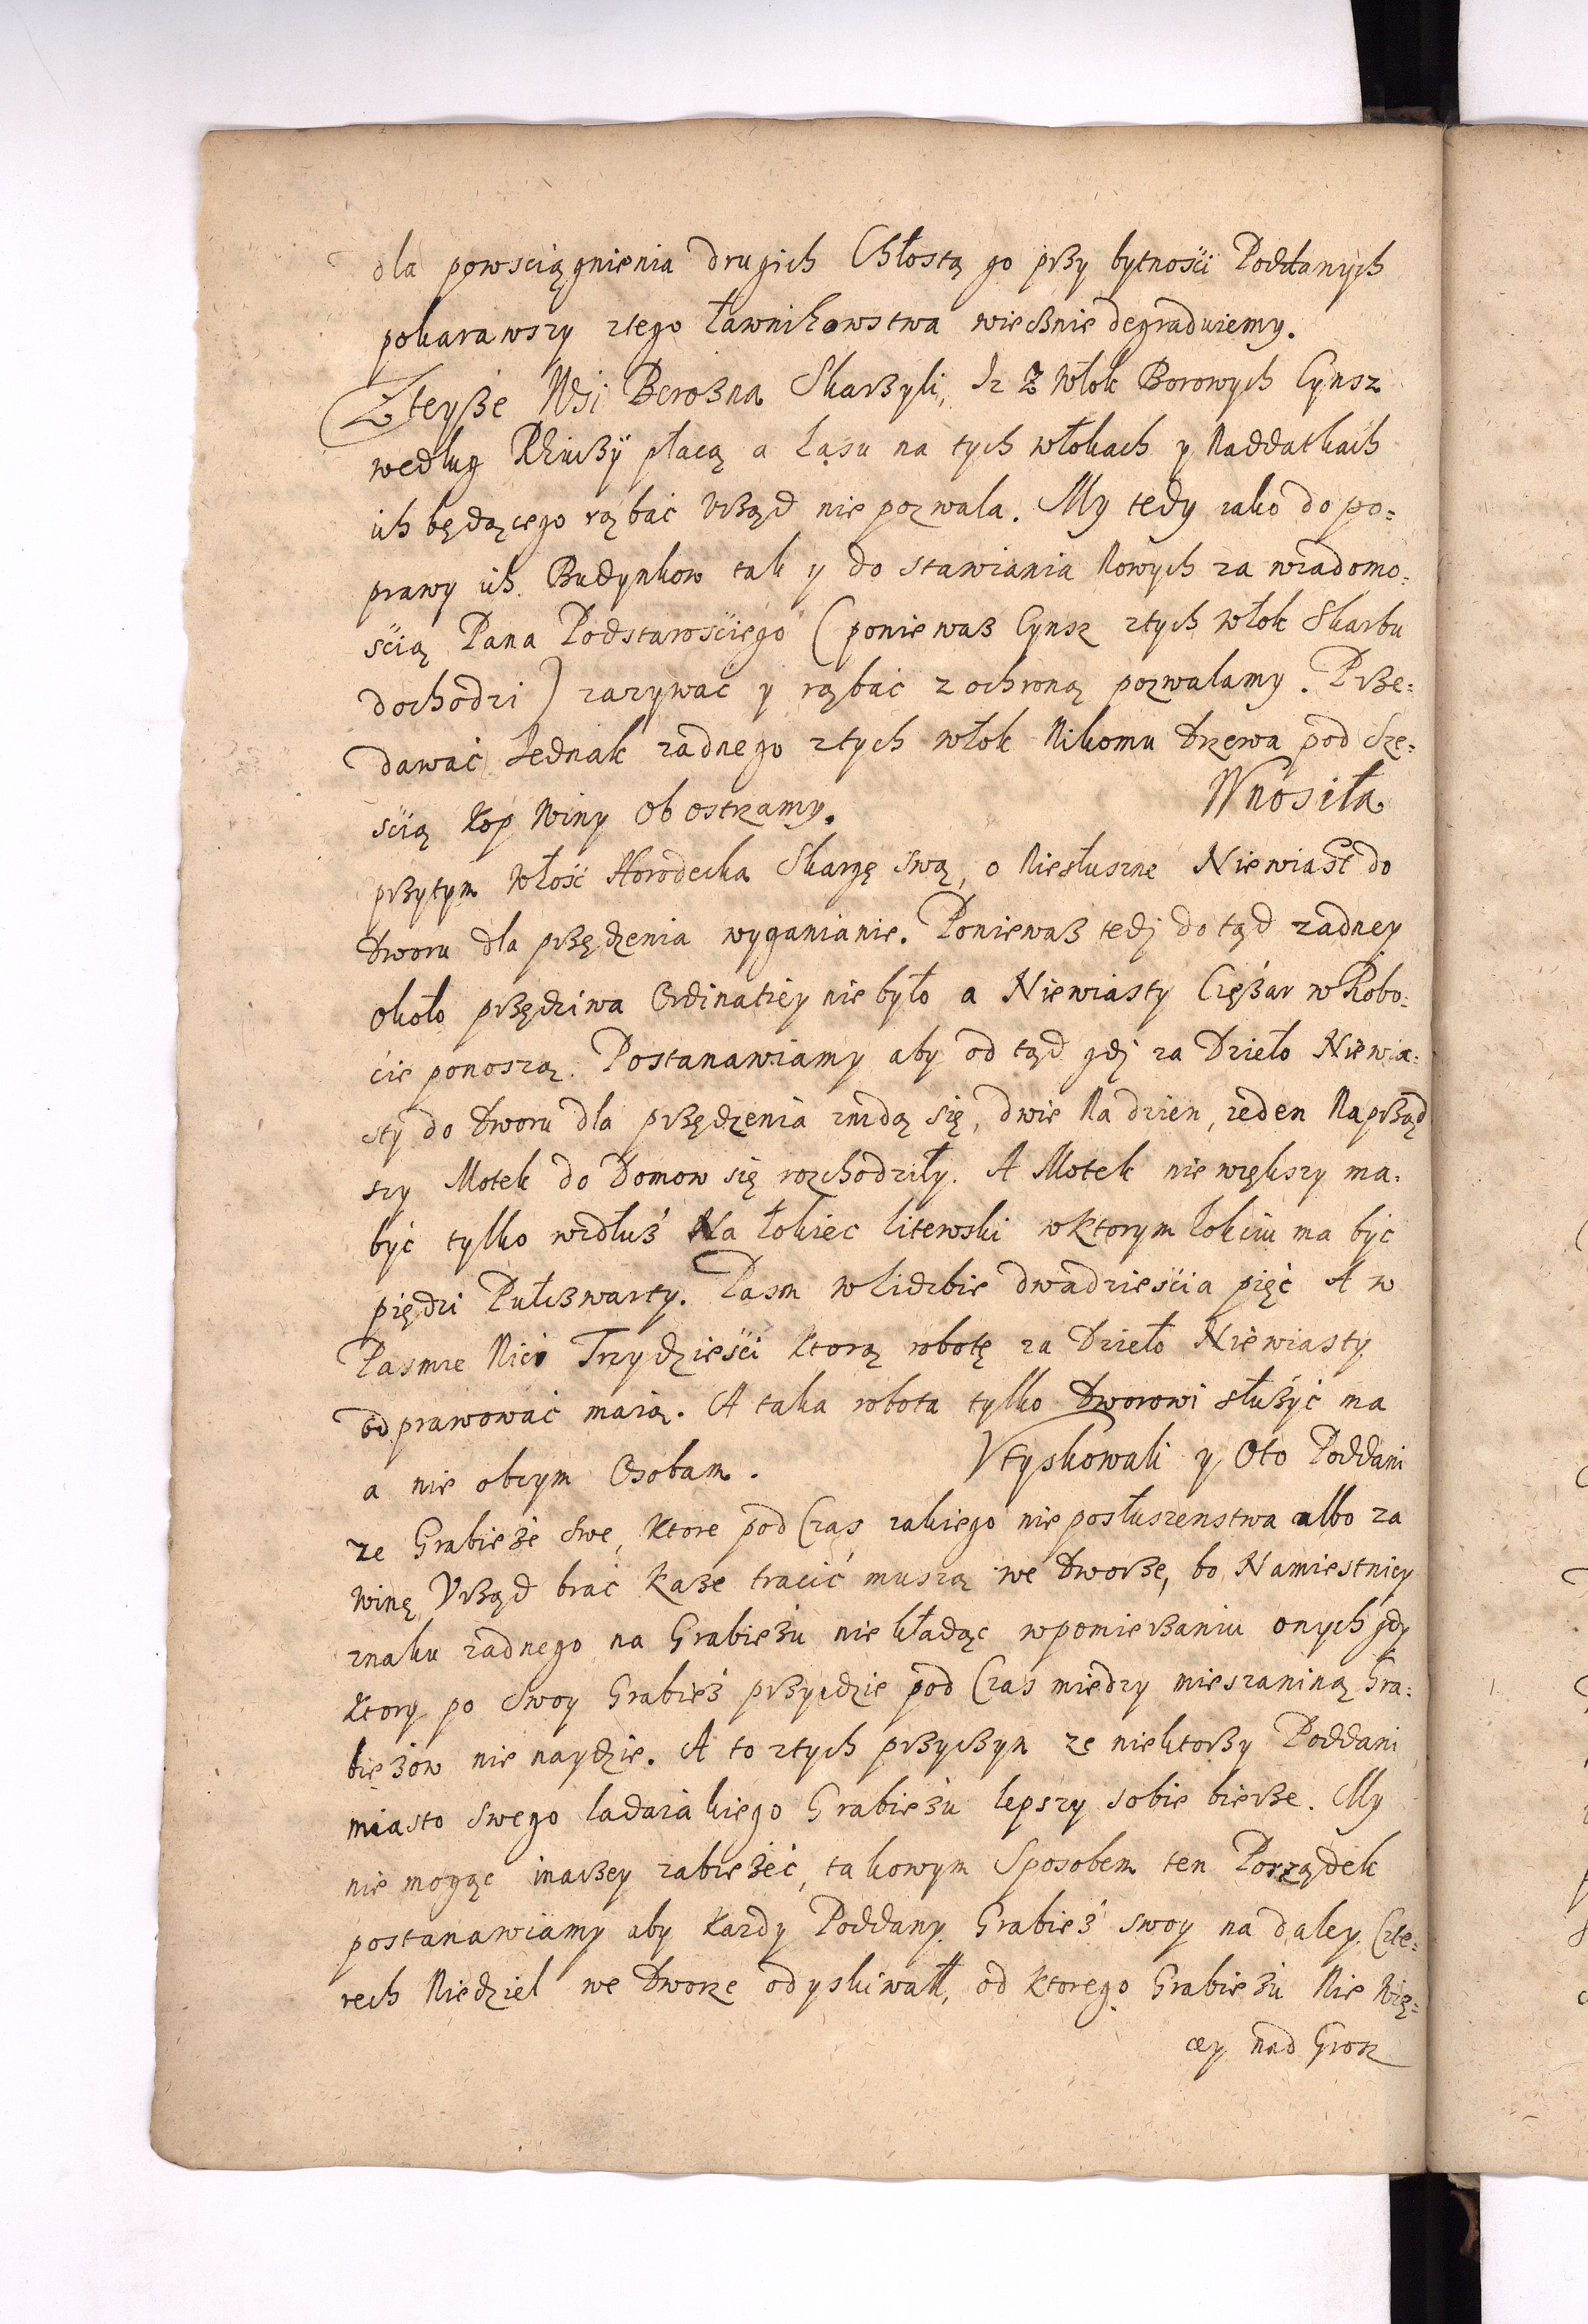 dla powsciągnienia drugich Chłostą go przy bytnosci Poddanych
pokarawszy ztego Ławnikowstwa wiecznie degraduiemy.
Zteyże Wsi Berozna Skarzyli, Iz z włok Borowych Cynsz
według płacą a Lasu na tych włokach y Naddatkach
ich będącego rąbać Urząd nie pozwala. My tedy iako do po=
prawy ich Budynkow tak y do stawiania Nowych za wiadomo=
ścią Pana Podstarosciego (poniewaz Cynsz ztych włok Skarbu
dochodzi) zazywać y rąbać z ochroną pozwalamy. Prze=
dawać Iednak zadnego ztych włok Nikomu Drzewa pod Sze=
ścią Kop Winy Obostrzamy. Wnosiła
przytym Włość Horodecka Skargę swą, o Niesłuszne Niewiast do
Dworu dla przędzenia wyganianie. Poniewaz tedj do tąd zadney
około przędziwa Ordinatiey nie było a Niewiasty Ciężar w Robo=
cie ponoszą. Postanawiamy aby od tąd gdj za Dzieło Niewia=
sty do Dworu dla przędzenia znidą się, dwie Na dzien, ieden Naprząd
szy Motek do Domow się rozchodziły. A Motek nie większy ma=
być tylko wzdłuż Na łokiec litewski w ktorym łokciu ma być
piędzi Pułczwarty. Pasm w liczbie dwadzieścia pięć A w
Pasmie Nici Trzydzieści Ktorą robotę za Dzieło Niewiasty
odprawować maią. A taka robota tylko Dworowi służyć ma
a nie obcym Osobam. Utyskowali y Oto Poddani
ze Grabieże swe, Ktore pod Czas iakiego nieposłuszenstwa albo za
winę Urząd brać Kaze tracić muszą we Dworze, bo Namiestnicy
znaku zadnego na Grabieżu nie kładąc w pomieszaniu onych gdy
Ktory po Swoy Grabież przyidzie pod Czas miedzy mieszaniną Gra=
bieżow nie naydzie. A to ztych przyczyn ze niektorzy Poddani
miasto swego ladaiakiego Grabieżu lepszy sobie bierze. My
nie mogąc inaczey zabieżeć, takowym Sposobem ten Porządek
postanawiamy aby Kazdy Poddany Grabież swoy na daley Czte=
rech Niedziel we Dworze odyskiwał, od Ktorego Grabieżu Nie Wię=
cey nad Grosz